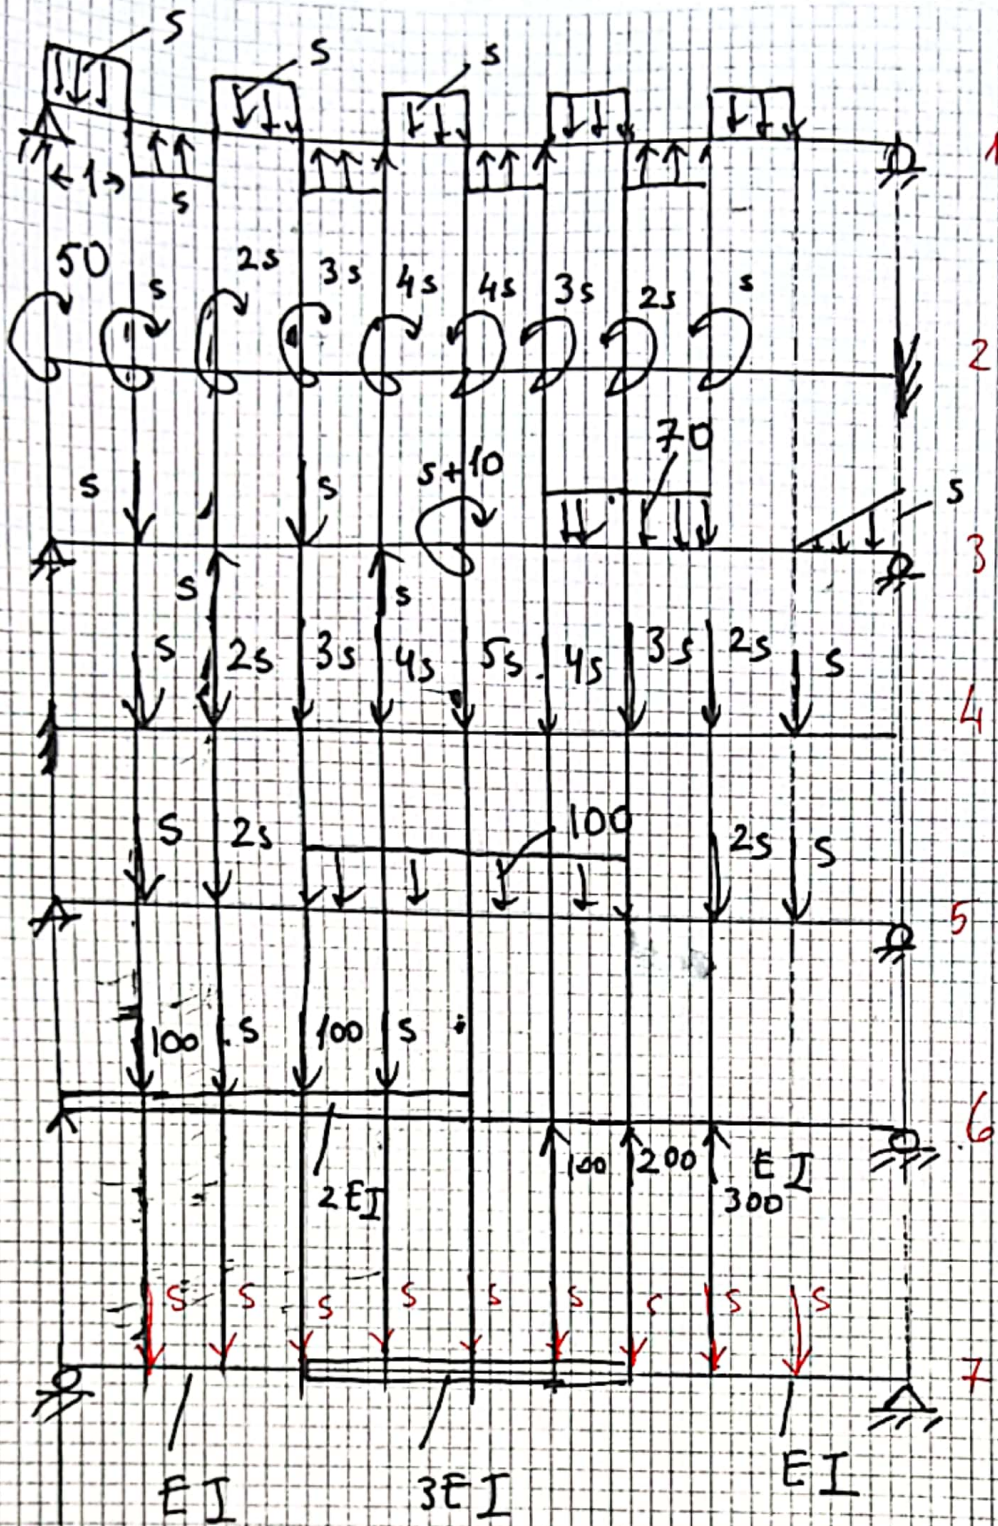 s
s
s
1
1
s
50
s
2s
3s
4s
4s
3s
2s
s
2
70
s+10
s
s
s
3
s
s
s
2s
3s
4s
5s
4s
3s
2s
s
4
100
s
2s
2s
s
5
100
s
100
s
6
100
200
EI
300
2EI
s
s
s
s
s
s
s
s
s
7
EI
3EI
EI